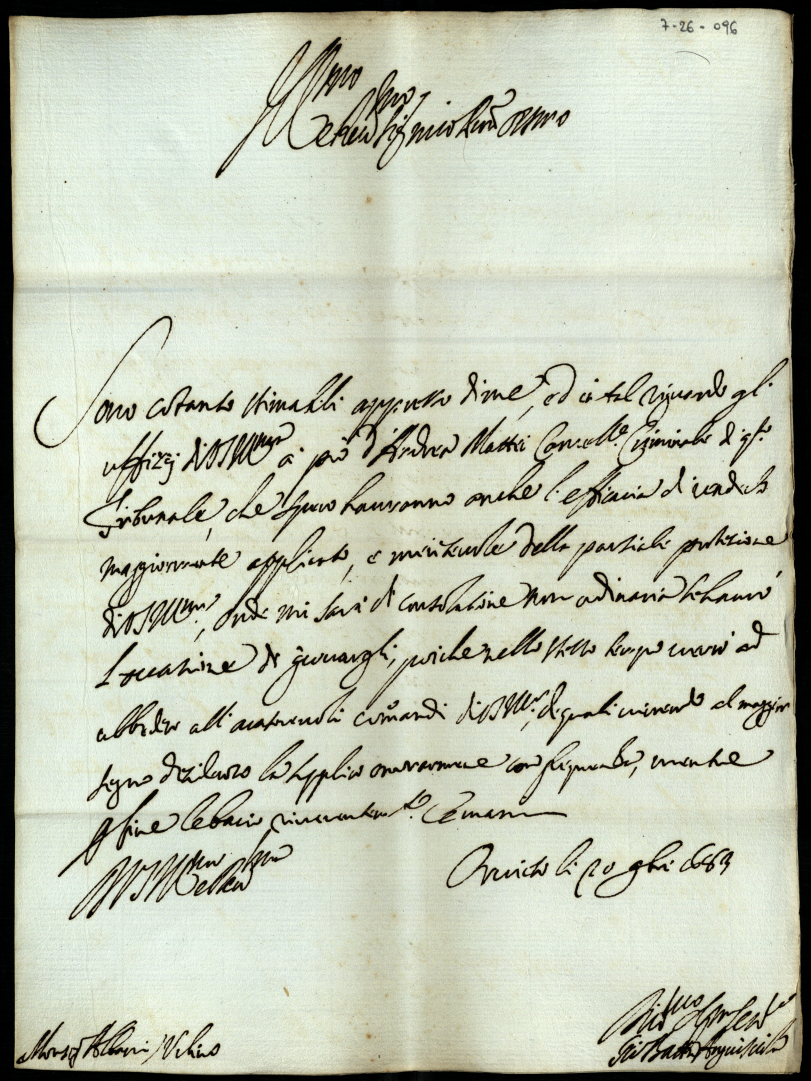 7-26-096
Ill.mo
e Rev.mo Sig.r mio P.ron Oss.mo
Sono cotanto stimabili appresso di me, ed in tal riguardo gli
uffizij di VS Ill.ma à prò d'Andrea Mattei Cancell.e Criminale di q.sto
Tribunale, che spero havranno anche l'efficacia di renderlo
maggiormente applicato, e meritevole della partiale protezione
di VS Ill.ma, onde mi sarà di consolatione non ordinaria se havrò
l'occasione di giovargli, poiche nello stesso tempo verrò ad
obbedire alli autorevoli comandi di VS Ill.ma, de quali vivendo al maggior
segno desideroso la supplico onorarmene con frequenza, mentre
p fine le bacio riverentem.te le mani
Di VS Ill.ma e Rev.ma
Orvieto li 20 9bre 1683
Mons.r Albani / Urbino
Div.mo Ser.
Gio Batta